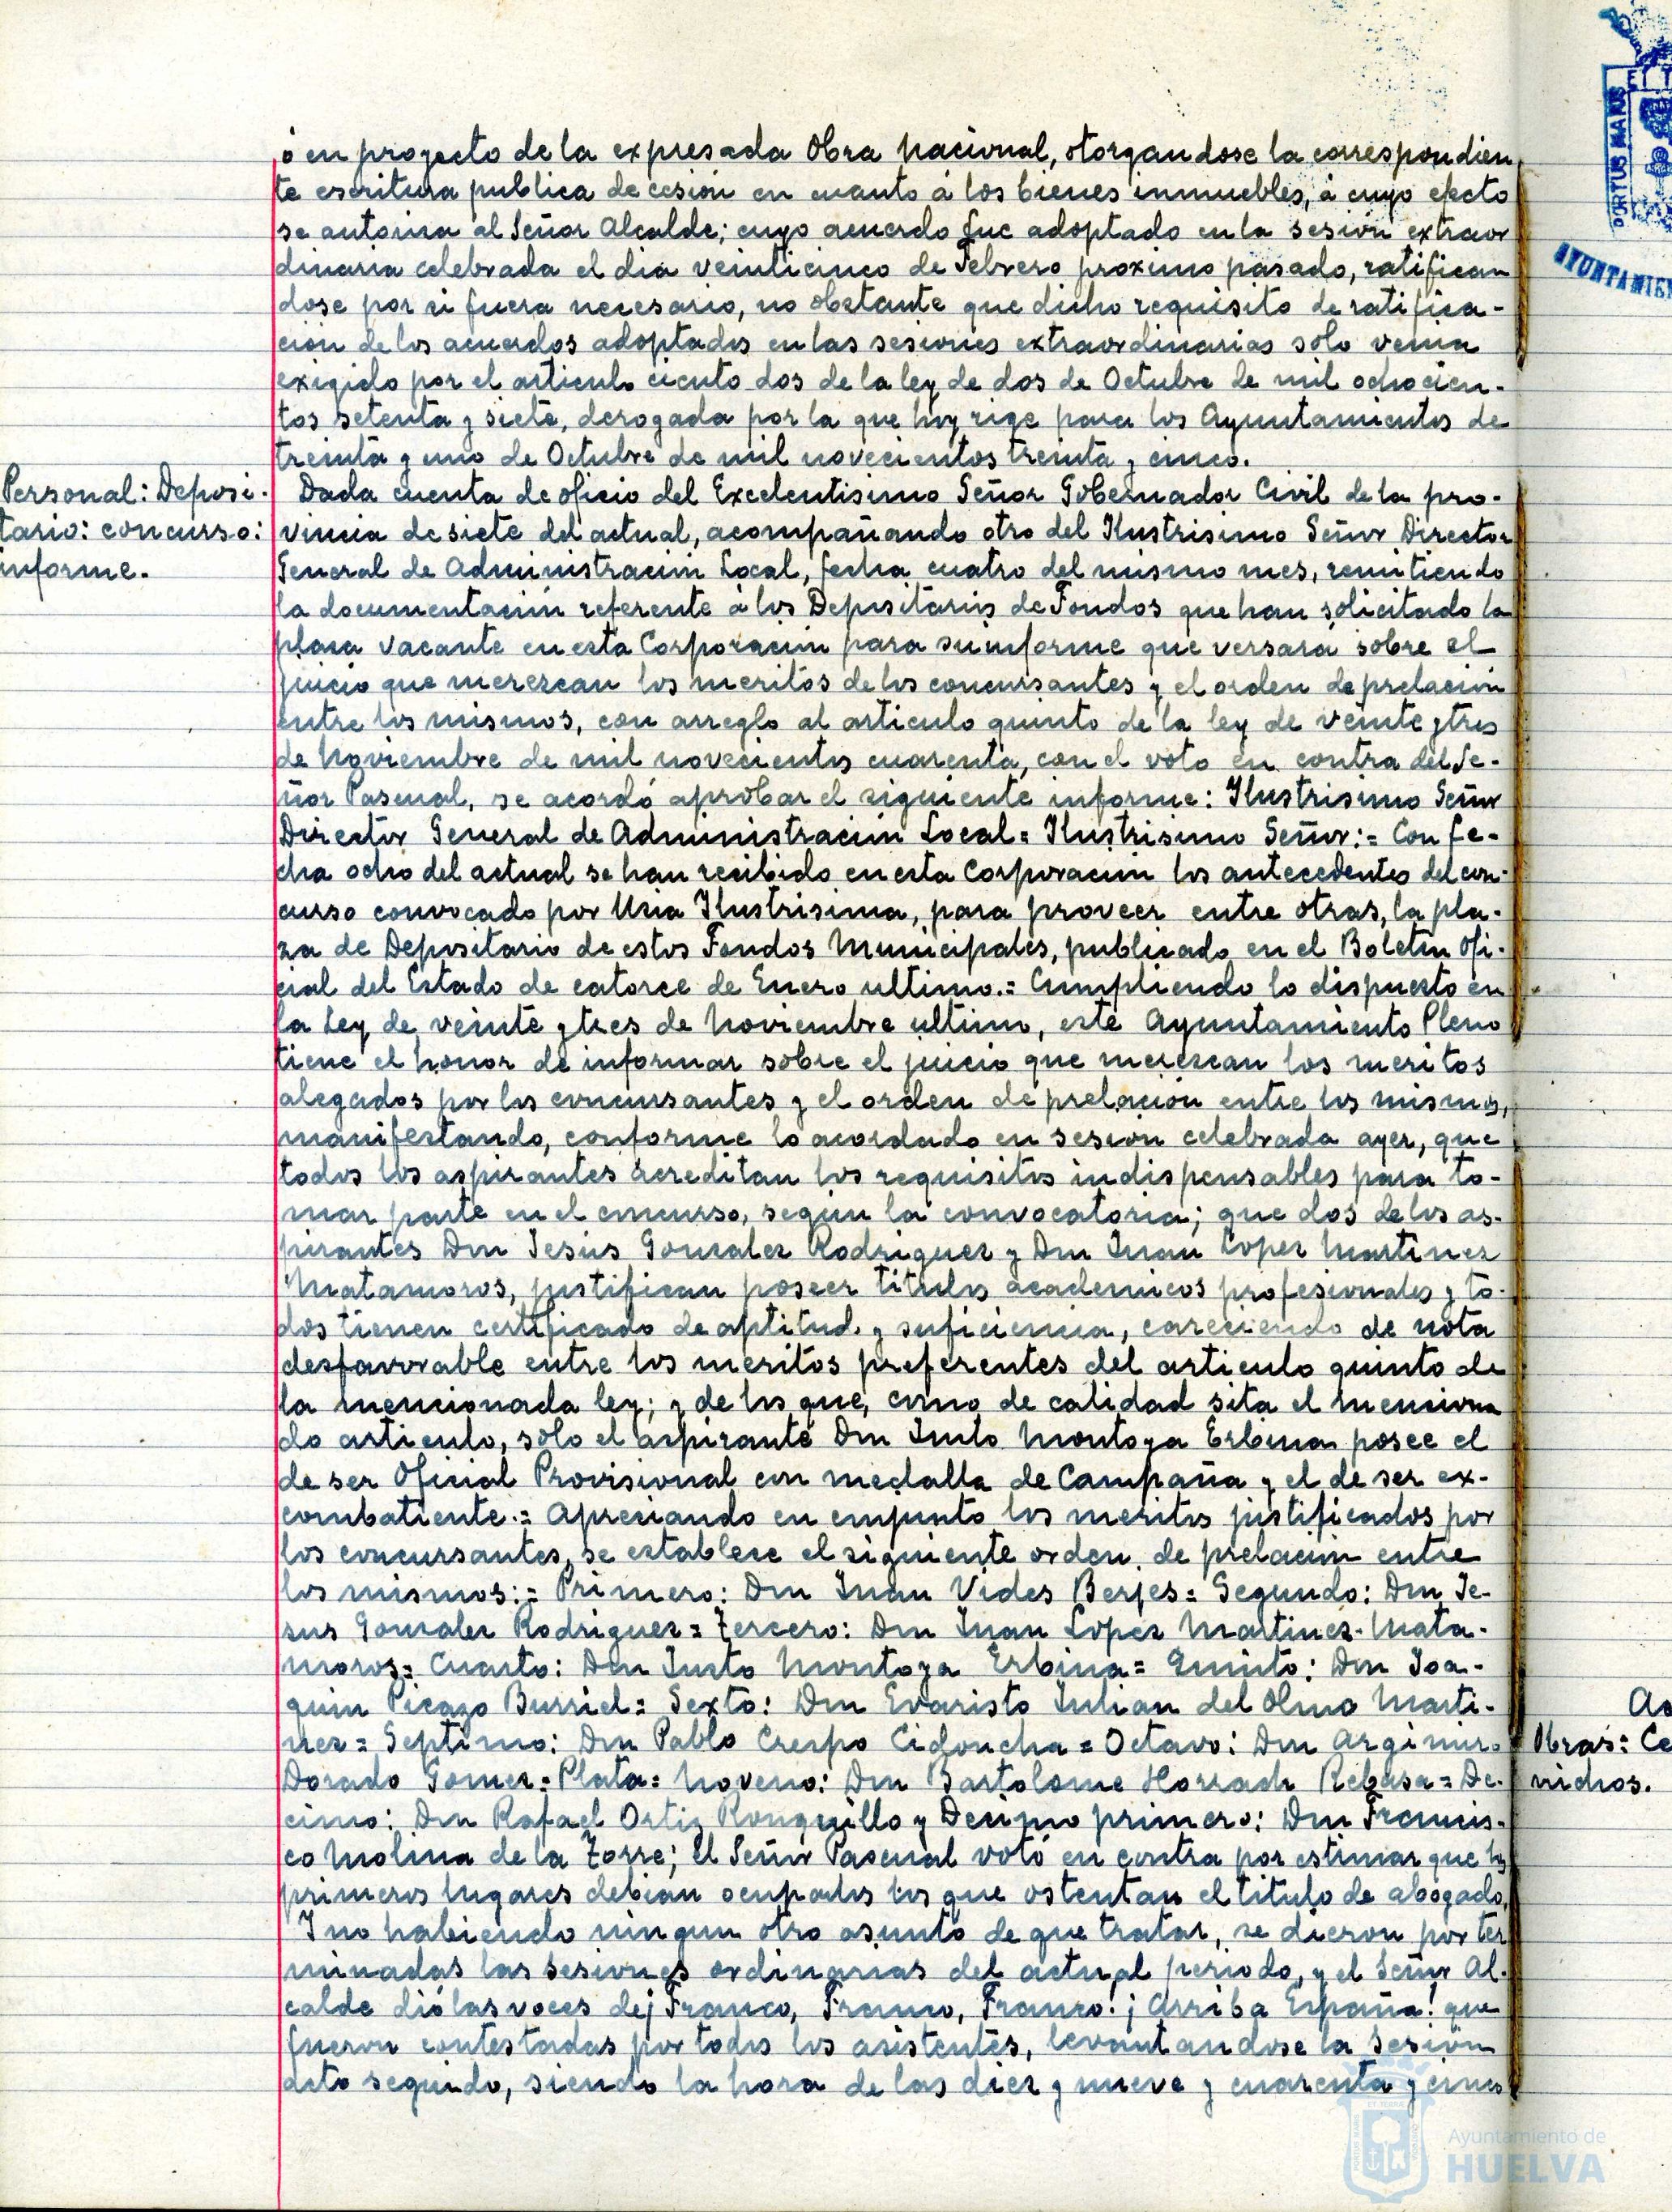 ó en proyecto de la expresada Obra Nacional, otorgandose la correspondien
te escritura publica de cesión en cuanto á los bienes inmuebles, á cuyo efecto
se autoriza al Señor Alcalde; cuyo acuerdo fue adoptado en la sesión extraor
dinaria celebrada el dia veinticinco de Febrero proximo pasado, ratifican
dose por si fuera necesario, no obstante que dicho requisito de ratifica-
ción de los acuerdos adoptados en las sesiones extraordinarias solo venia
exigido por el articulo ciento dos de la ley de dos de Octubre de mil ochocien-
tos setenta y siete, derogada por la que hoy rige para los Ayuntamientos de
treinta y uno de Octubre de mil novecientos treinta y cinco.
Personal: Deposi-
tario: concurso:
informe.
Dada cuenta de oficio del Excelentisimo Señor Gobernador Civil de la pro-
vincia de siete del actual, acompañando otro del Ilustrisimo Señor Director
General de Administración Local, fecha cuatro del mismo mes, remitiendo
la documentación referente á los Depositarios de Fondos que han solicitado la
plaza vacante en esta Corporación para su informe que versará sobre el
juicio que merezcan los meritos de los concursantes y el orden de prelación
entre los mismos, con arreglo al articulo quinto de la ley de veinte y tres
de Noviembre de mil novecientos cuarenta, con el voto en contra del Se-
ñor Pascual, se acordó aprobar el siguiente informe: Ilustrisimo Señor
Director General de Administración Local= Ilustrisimo Señor:= Con fe-
cha ocho del actual se han recibido en esta Corporación los antecedentes del con-
curso convocado por Usia Ilustrisima, para proveer entre otras, la pla-
za de Depositario de estos Fondos Municipales, publicado en el Boletin Ofi-
cial del Estado de catorce de Enero ultimo.= Cumpliendo lo dispuesto en
la Ley de veinte y tres de Noviembre ultimo, este Ayuntamiento Pleno
tiene el honor de informar sobre el juicio que merezcan los meritos
alegados por los concursantes y el orden de prelación entre los mismos,
manifestando, conforme lo acordado en sesion celebrada ayer, que
todos los aspirantes acreditan los requisitos indispensables para to-
mar parte en el concurso, según la convocatoria; que dos de los as-
pirantes Don Jesús Gonzalez Rodriguez y Don Juan Lopez Martinez
Matamoros, justifican poseer titulos academicos profesionales y to-
dos tienen certificado de aptitud y suficiencia, careciendo de nota
desfavorable entre los meritos preferentes del articulo quinto de
la mencionada ley; y de los que, como de calidad sita el menciona
do articulo, solo el aspirante Don Justo Montoya Erbina posee el
de ser Oficial Provisional con medalla de Campaña y el de ser ex-
combatiente.= Apreciando en conjunto los meritos justificados por
los concursantes, se establece el siguiente orden de prelación entre
los mismos:= Primero: Don Juan Vides Berjes= Segundo: Don Je-
sus Gonzalez Rodriguez= Tercero: Don Juan Lopez Martinez-Mata-
moros= Cuarto: Don Justo Montoya Erbina= Quinto: Don Joa-
quin Picazo Burriel= Sexto: Don Evaristo Julian del Olmo Marti-
nez= Septimo: Don Pablo Crespo Cidoncha= Octavo: Don Argimiro
Dorado Gomez-Plata= Noveno: Don Bartolome Horrach Rebasa= De-
cimo: Don Rafael Ortiz Ronquillo y Decimo primero: Don Francis-
co Molina de la Torre; el Señor Pascual votó en contra por estimar que los
primeros lugares debian ocuparlos los que ostentan el titulo de abogado.
Y no habiendo ningun otro asunto de que tratar, se dieron por ter
minadas las sesiones ordinarias del actual periodo, y el Señor Al-
calde dió las voces de ¡Franco, Franco, Franco! ¡Arriba España! que
fueron contestadas por todos los asistentes, levantandose la sesión
acto seguido, siendo la hora de las diez y nueve y cuarenta y cinco
PORTUS MARIS
AYUNTAMIE
Ac
Obras: Ce
nichos.
Ayuntamiento de
HUELVA